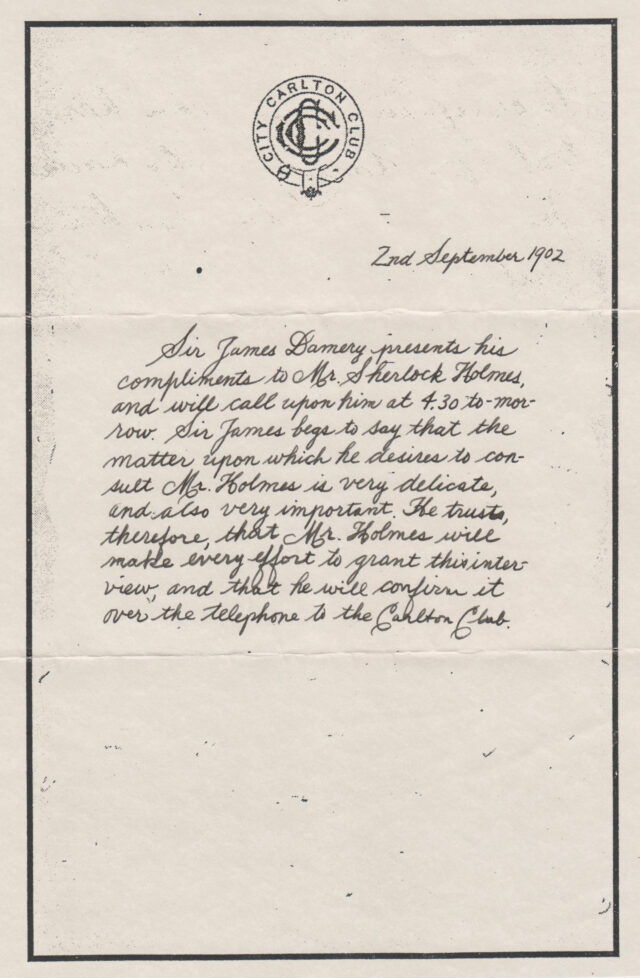 CITY CARLTON CLUB
2nd September 1902
Sir James Damery presents his
compliments to Mr. Sherlock Holmes,
and will call upon him at 4.30 to-mor-
row. Sir James begs to say that the
matter upon which he desires to con-
sult Mr. Holmes is very delicate,
and also very important. He trusts,
therefore, that Mr. Holmes will
make every effort to grant this inter-
view, and that he will confirm it
over the telephone to the Carlton Club.